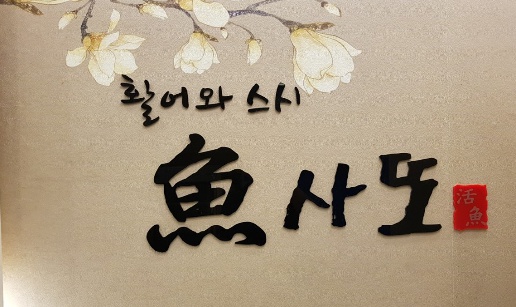 활어와 스시
魚사또
活魚